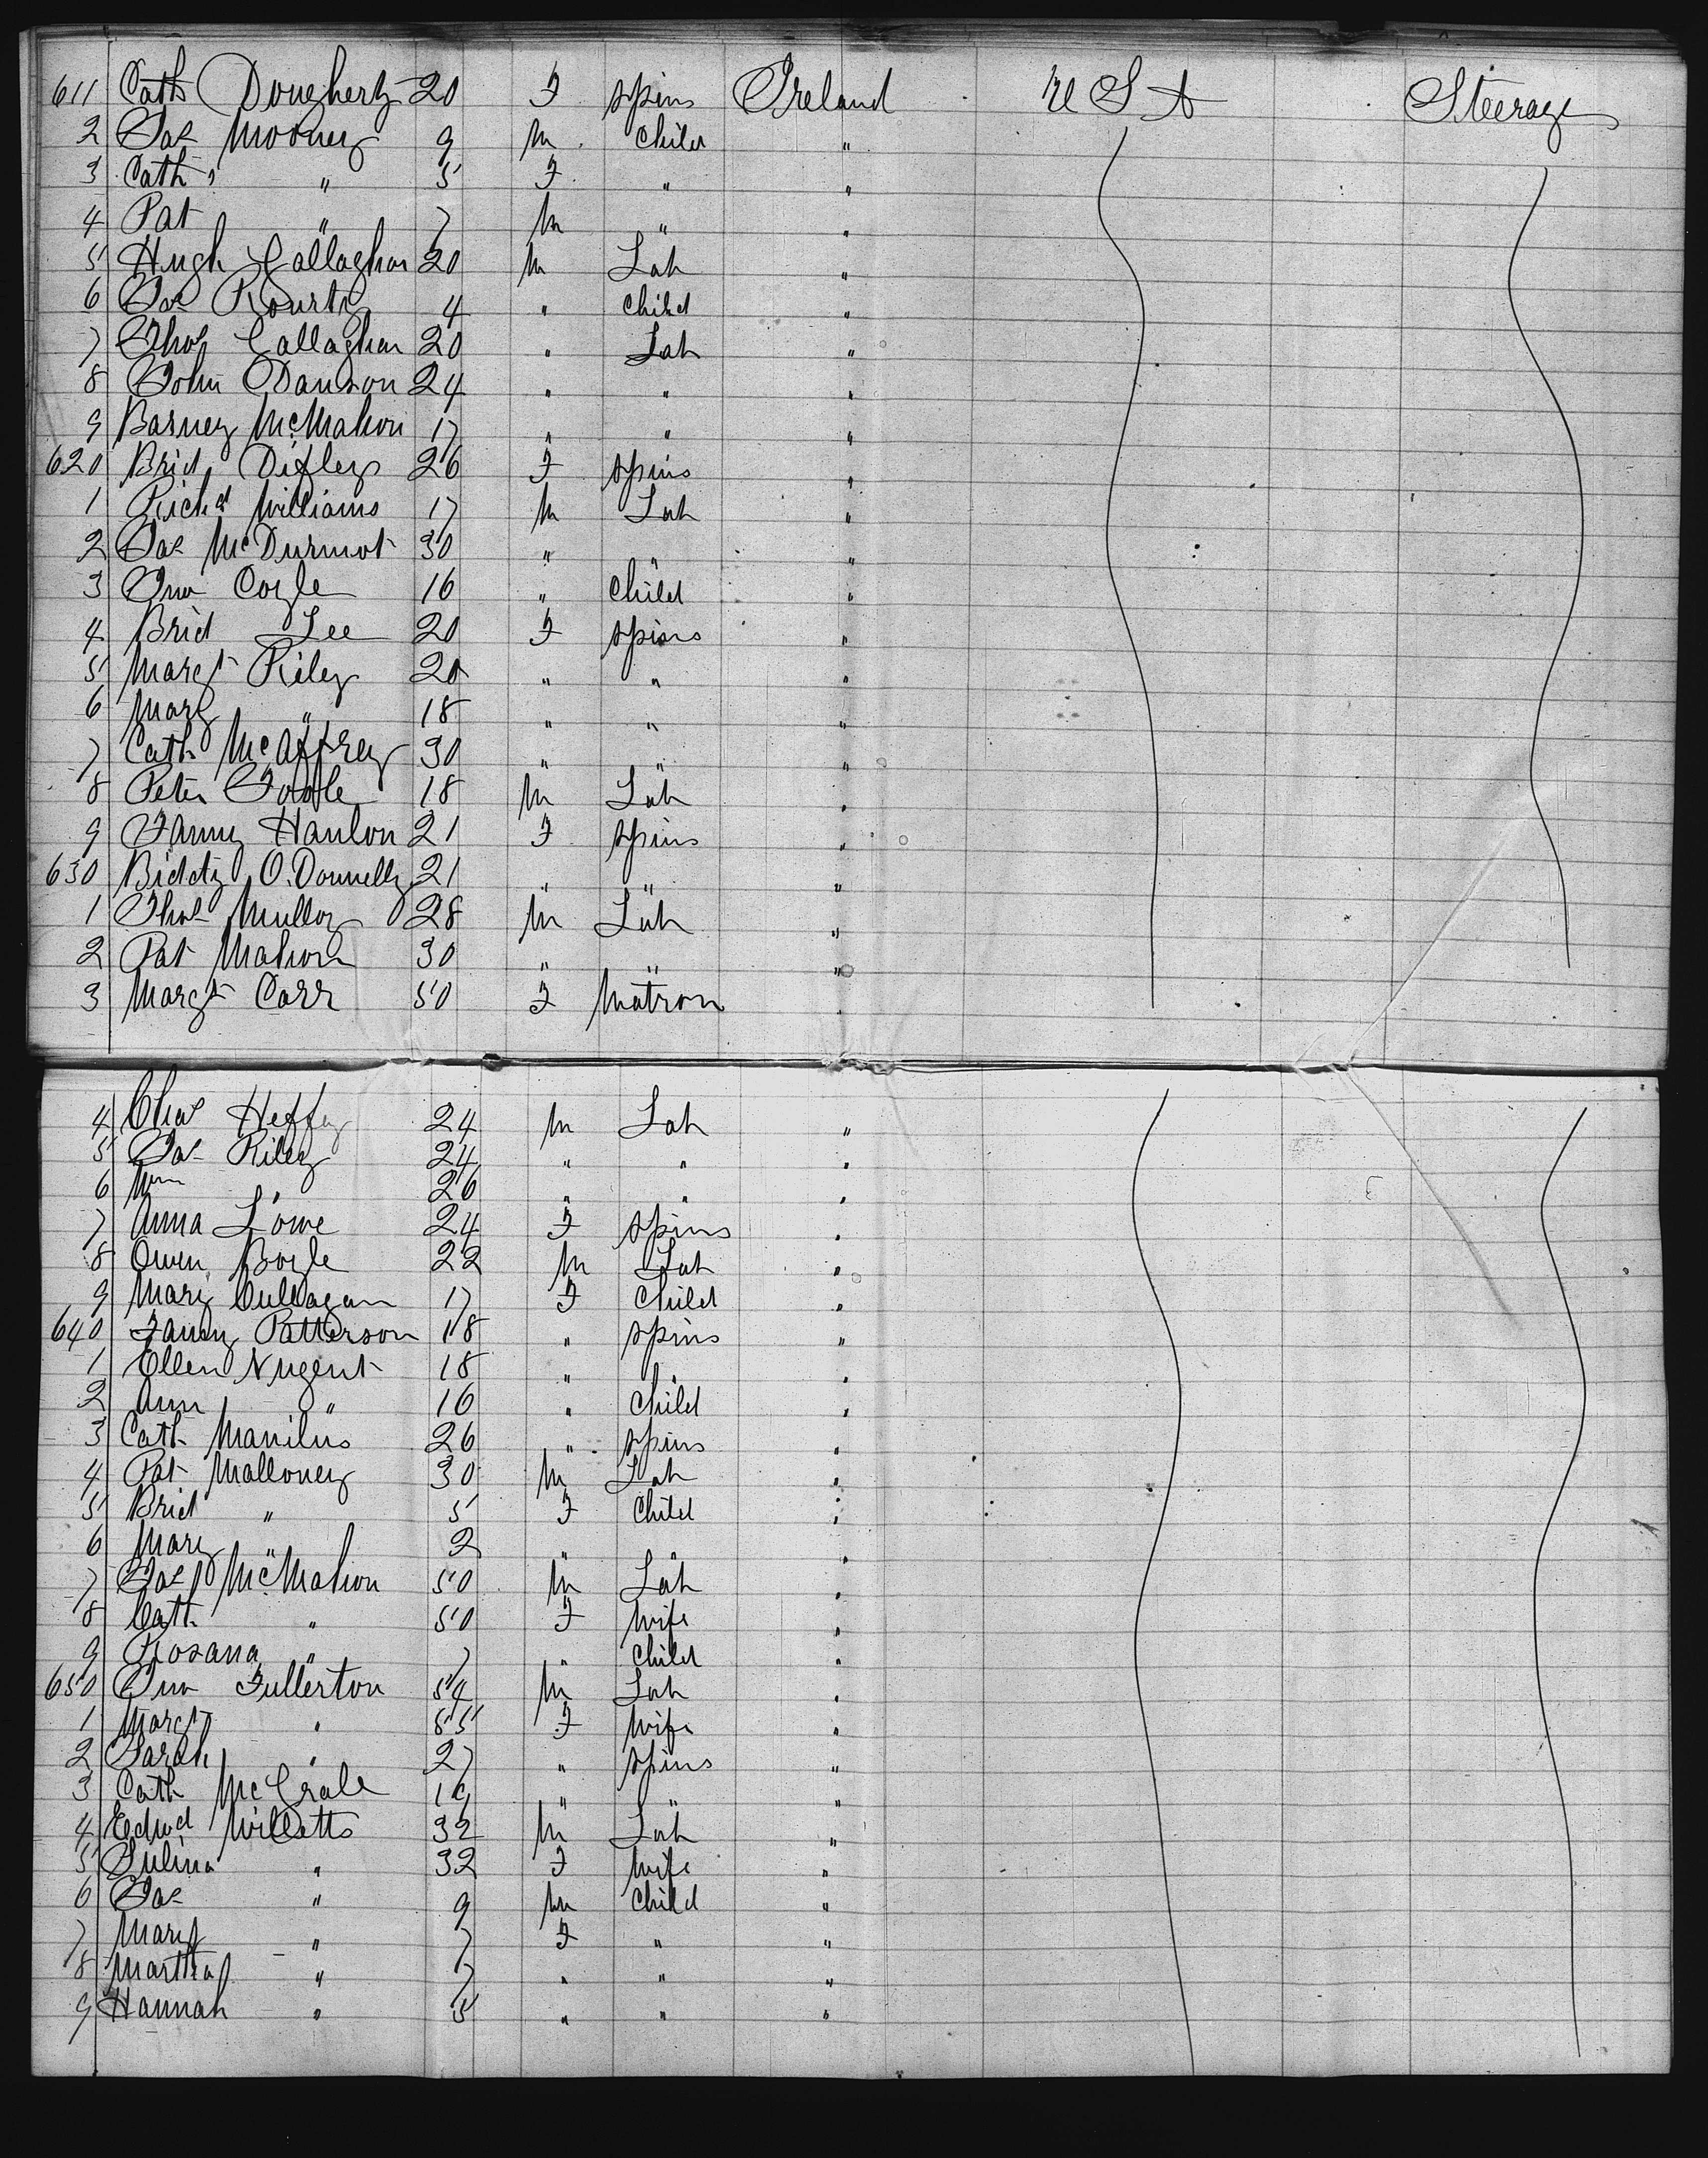 611 Cath Dougherty 20 F spins Ireland U S A Steerage
2 Jas Mooney 9 M Child "
3 Cath " 5 F " "
4 Pat " 7 M " "
5 Hugh Callaghan 20 M Lab "
6 Jas Rourty 4 " Child "
7 Thos Callaghan 20 " Lab "
8 John Danson 24 " " "
9 Barney McMahon 17 " " "
620 Brid 26 F spins "
1 Richd Williams 17 M Lab "
2 Jas McDurmot 30 " " "
3 Jno Coyle 16 " Child "
4 Brid Lee 20 F spins "
5 Margt Riley 20 " " "
6 Mary " 18 " " "
7 Cath McAffrey 30 " " "
8 Peter Toole 18 M Lab "
9 Fanny Hanlon 21 F spins "
630 Biddy O.Donnelly 21 " " "
1 Thos Mulloy 28 M Lab "
2 Pat Mahon 30 " " "
3 Margt Carr 50 F Matron "
4 Chas Heffy 24 M Lab "
5 Jas Riley 24 " " "
6 Wm " 26 " " "
7 Anna Lowe 24 F spins "
8 Owen Boyle 22 M Lab "
9 Mary Cullagan 17 F Child "
640 Fanny Patterson 18 " spins "
1 Ellen Nugent 18 " " "
2 Ann " 16 " Child "
3 Cath Manilus 26 " spins "
4 Pat Malloney 30 M Lab "
5 Brid " 5 F Child "
6 Mary " 2 " " "
7 Jas McMahon 50 M Lab "
8 Cath " 50 F Wife "
9 Rosana " 7 " Child "
650 Jno Fullerton 54 M Lab "
1 Margt " 55 F Wife "
2 Sarah " 27 " spins "
3 Cath McGrale " " "
4 Edwd Willatts 32 M Lab "
5 Julina " 32 F Wife "
6 Jas " 9 M Child "
7 Mary " 7 F " "
8 Martha " 7 " " "
9 Hannah " 5 " " "